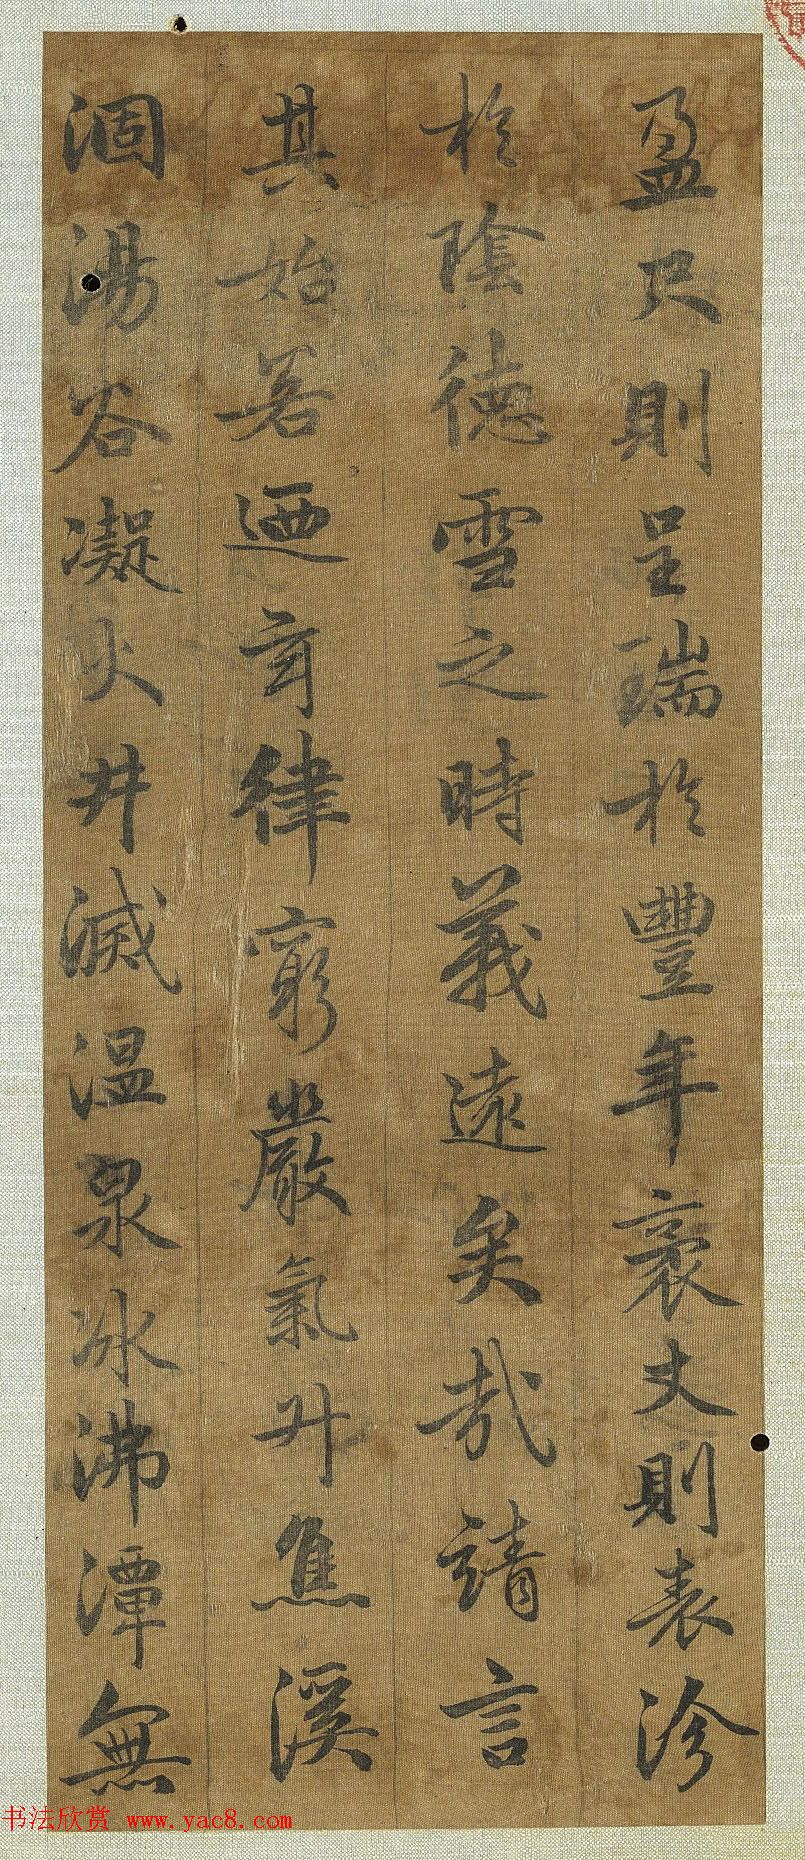 盈尺則呈瑞於豐年袤丈則表沴
於陰德雪之時義遠矣哉請言
其始若迺玄律窮嚴氣升焦溪
涸湯谷凝火井滅温泉冰沸潭無
书法欣赏 www.yac8.com